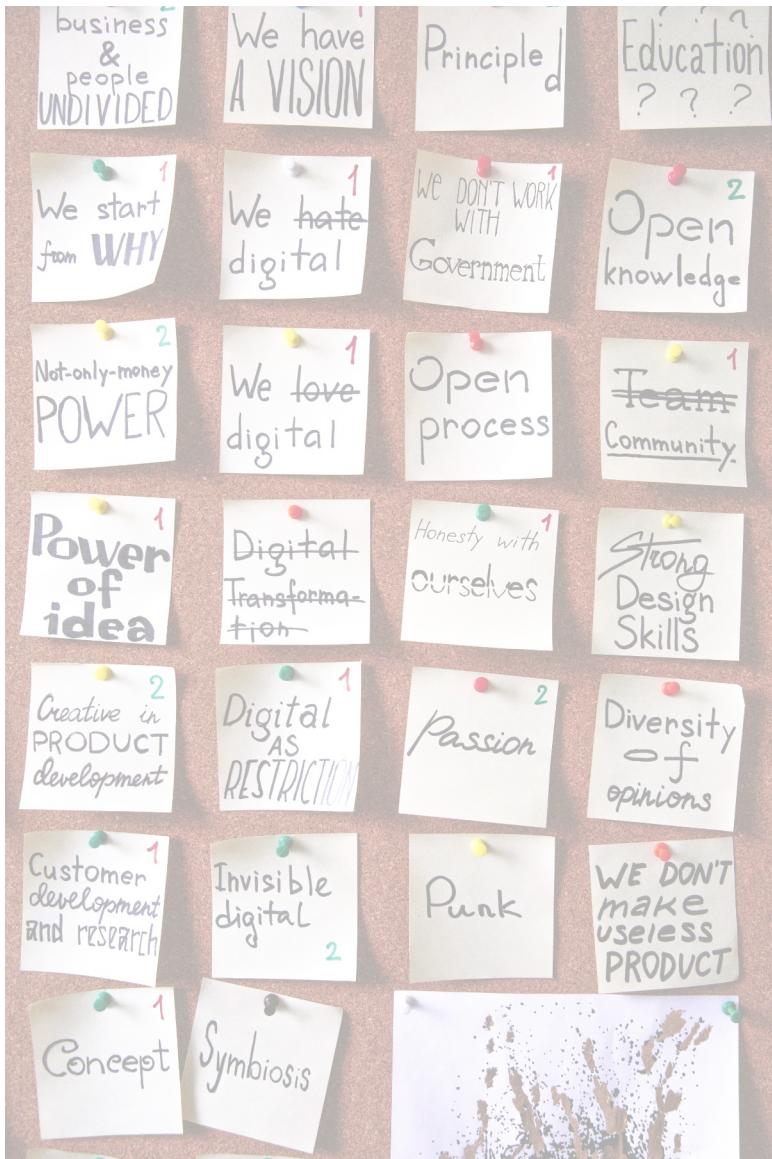 2
business
&
people
UNDIVIDED
1
We have
A VISION
Principled
? ? ?
Education
? ? ?
1
We start
from WHY
1
We hate
digital
1
We DON'T WORK
WITH
Government
2
Open
knowledge
2
Not-only-money
POWER
1
We love
digital
Open
process
1
Team
Community.
1
Power
of
idea
Digital
Transforma-
tion
1
Honesty with
ourselves
Strong
Design
Skills
2
Creative in
PRODUCT
development
1
Digital
AS
RESTRICTION
2
Passion
Diversity
of
opinions
1
Customer
development
and research
Invisible
digital
2
Punk
WE DON'T
make
useless
PRODUCT
1
Concept
Symbiosis